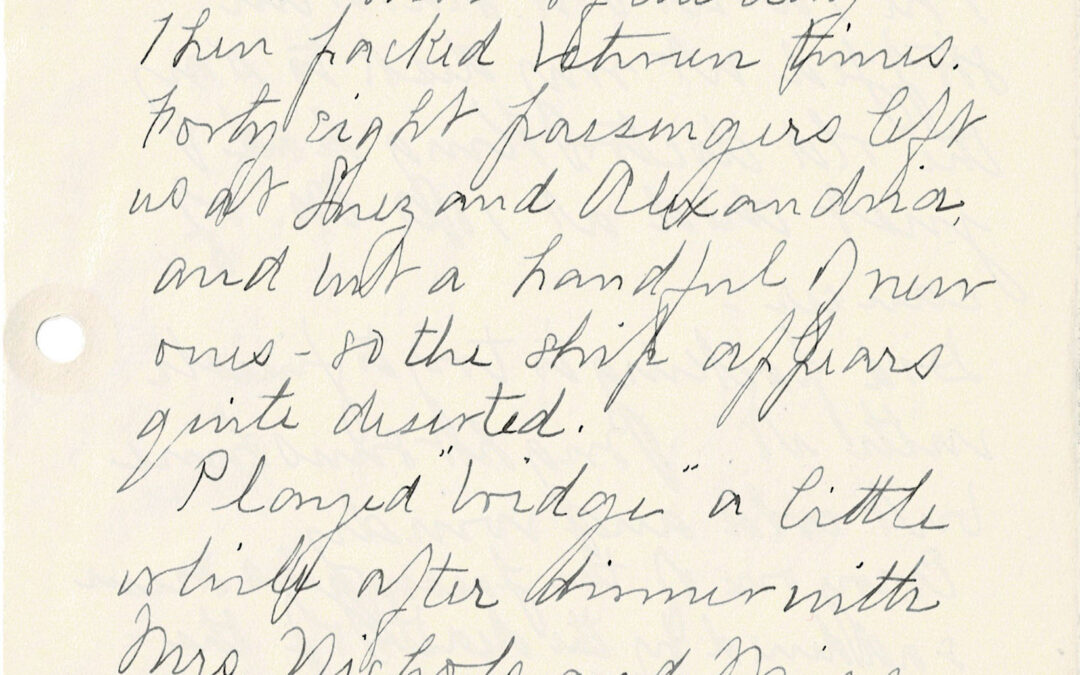 Then packed between times.
Forty eight passengers left
us at Suez and Alexandria,
and but a handful of new
ones - so the ship appears
quite deserted.
Played "bridge" a little
while after dinner with
Mrs Nichols and Miss